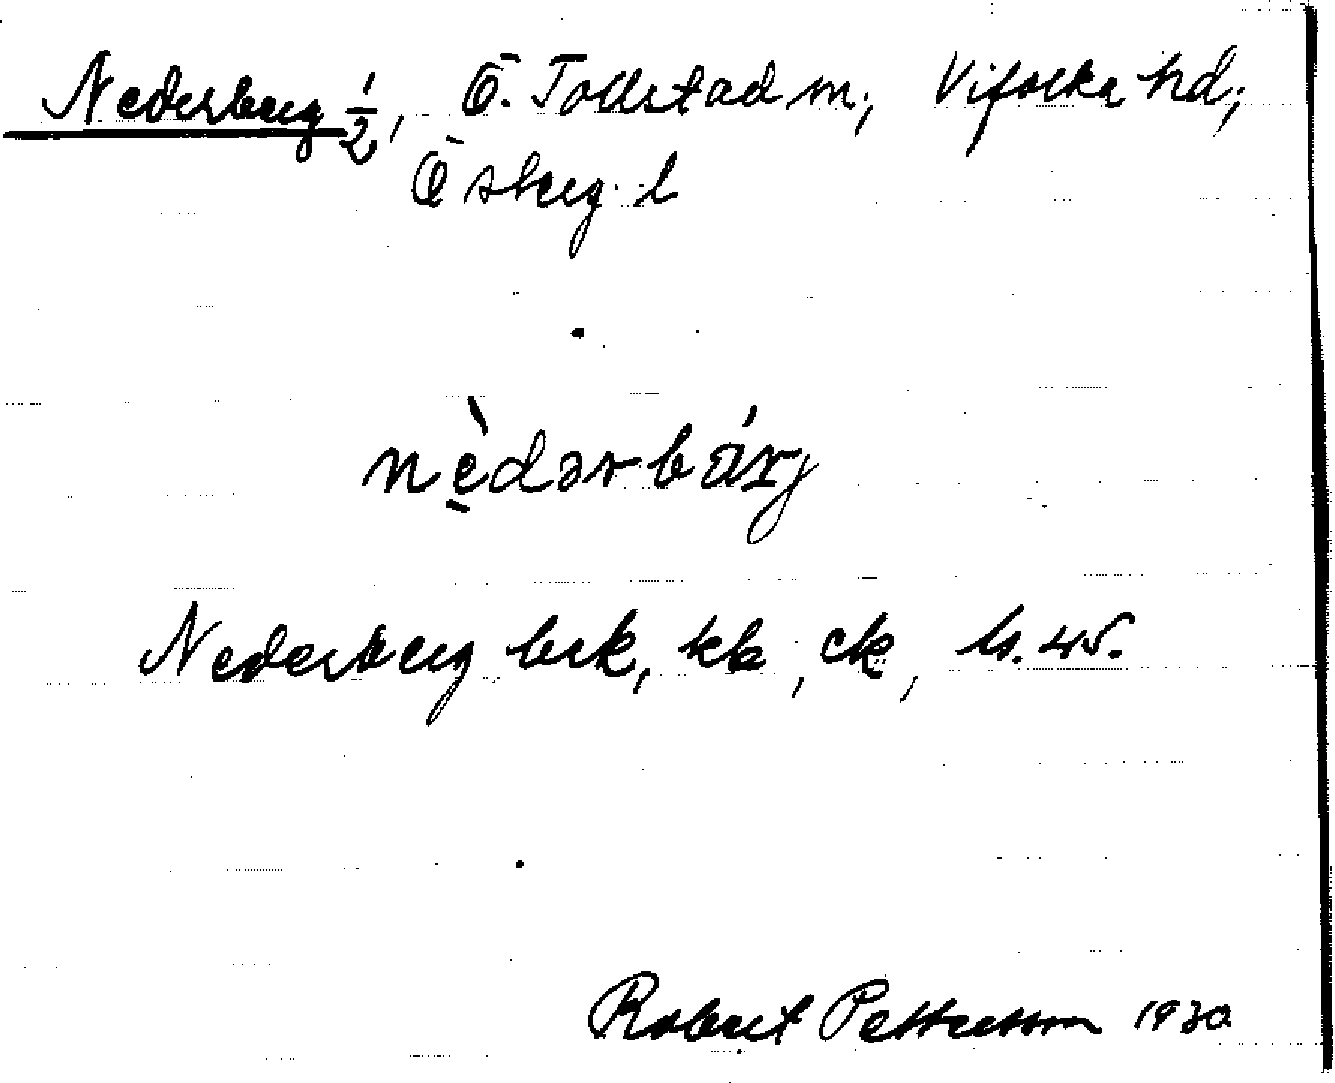 Nederberg 1/2, Ö. Tollstad sn; Vifolka hd;
Östergl. l
nèdərbárj
Nederberg brk, kb, ck, ls. 45.
Robert Pettersson 1930